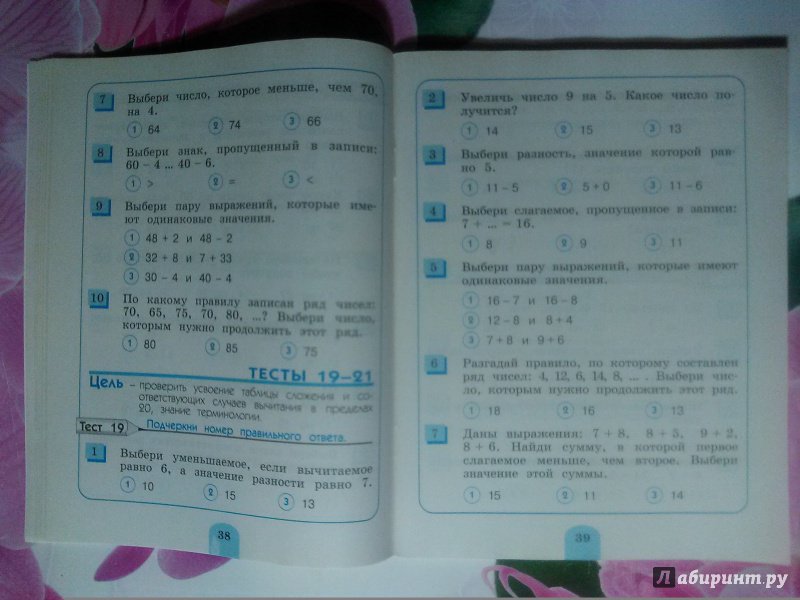 7 Выбери число, которое меньше, чем 70,
на 4.
1 64 2 74 3 66
8 Выбери знак, пропущенный в записи:
60 – 4 ... 40 – 6.
1 > 2 = 3 <
9 Выбери пару выражений, которые име-
ют одинаковые значения.
1 48 + 2 и 48 – 2
2 32 + 8 и 7 + 33
3 30 – 4 и 40 – 4
10 По какому правилу записан ряд чисел:
70, 65, 75, 70, 80, ...? Выбери число,
которым нужно продолжить этот ряд.
1 80 2 85 3 75
ТЕСТЫ 19–21
Цель – проверить усвоение таблицы сложения и со-
ответствующих случаев вычитания в пределах
20, знание терминологии.
Тест 19 Подчеркни номер правильного ответа.
1 Выбери уменьшаемое, если вычитаемое
равно 6, а значение разности равно 7.
1 10 2 15 3 13
38
2 Увеличь число 9 на 5. Какое число по-
лучится?
1 14 2 15 3 13
3 Выбери разность, значение которой рав-
но 5.
1 11 – 5 2 5 + 0 3 11 – 6
4 Выбери слагаемое, пропущенное в записи:
7 + ... = 16.
1 8 2 9 3 11
5 Выбери пару выражений, которые имеют
одинаковые значения.
1 16 – 7 и 16 – 8
2 12 – 8 и 8 + 4
3 7 + 8 и 9 + 6
6 Разгадай правило, по которому составлен
ряд чисел: 4, 12, 6, 14, 8, ... . Выбери чис-
ло, которым нужно продолжить этот ряд.
1 18 2 16 3 13
7 Даны выражения: 7 + 8, 8 + 5, 9 + 2,
8 + 6. Найди сумму, в которой первое
слагаемое меньше, чем второе. Выбери
значение этой суммы.
1 15 2 11 3 14
39
Лабиринт.ру